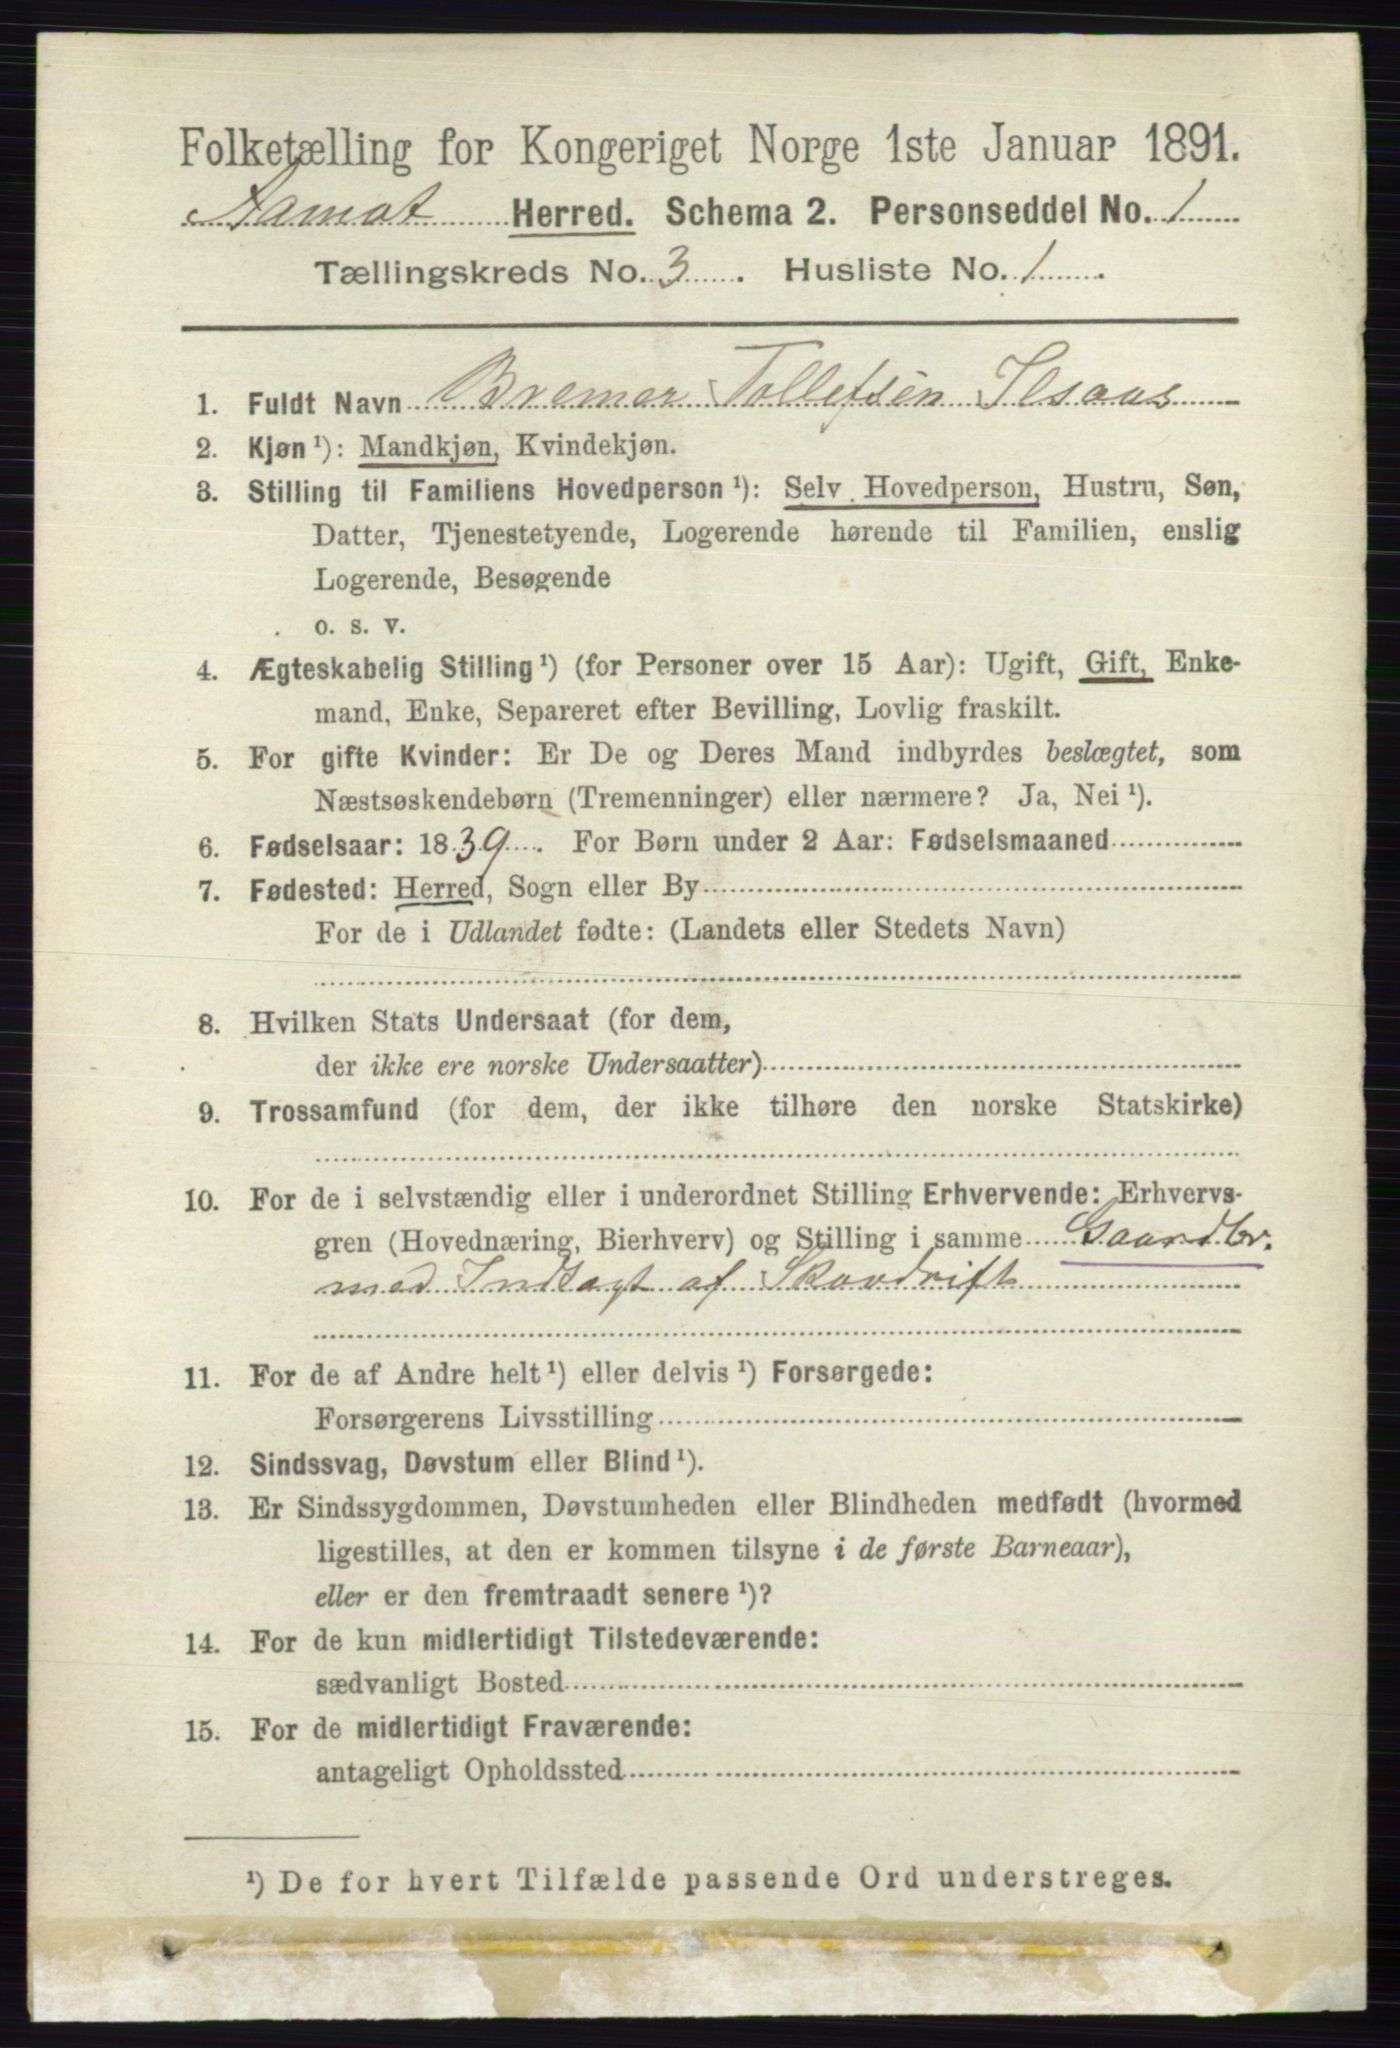 Folketælling for Kongeriget Norge 1ste Januar 1891.
Aamot Herred. Schema 2. Personseddel No. 1
Tællingskreds No. 3. Husliste No. 1.
1. Fuldt Navn Bremer Tollefsen Ilsaas
2. Kjøn ¹): Mandkjøn, Kvindekjøn.
3. Stilling til Familiens Hovedperson ¹): Selv Hovedperson, Hustru, Søn,
Datter, Tjenestetyende, Logerende hørende til Familien, enslig
Logerende, Besøgende
o. s. v.
4. Ægteskabelig Stilling ¹) (for Personer over 15 Aar): Ugift, Gift, Enke-
mand, Enke, Separeret efter Bevilling, Lovlig fraskilt.
5. For gifte Kvinder: Er De og Deres Mand indbyrdes beslægtet, som
Næstsøskendebørn (Tremenninger) eller nærmere? Ja, Nei ¹).
6. Fødselsaar: 1839. For Børn under 2 Aar: Fødselsmaaned
7. Fødested: Herred, Sogn eller By
For de i Udlandet fødte: (Landets eller Stedets Navn)
8. Hvilken Stats Undersaat (for dem,
der ikke ere norske Undersaatter)
9. Trossamfund (for dem, der ikke tilhøre den norske Statskirke)
10. For de i selvstændig eller i underordnet Stilling Erhvervende: Erhvervs-
gren (Hovednæring, Bierhverv) og Stilling i samme Gaardbr.
med Indtægt af Skovdrift
11. For de af Andre helt ¹) eller delvis ¹) Forsørgede:
Forsørgerens Livsstilling
12. Sindssvag, Døvstum eller Blind ¹).
13. Er Sindssygdommen, Døvstumheden eller Blindheden medfødt (hvormed
ligestilles, at den er kommen tilsyne i de første Barneaar),
eller er den fremtraadt senere ¹)?
14. For de kun midlertidigt Tilstedeværende:
sædvanligt Bosted
15. For de midlertidigt Fraværende:
antageligt Opholdssted
¹) De for hvert Tilfælde passende Ord understreges.